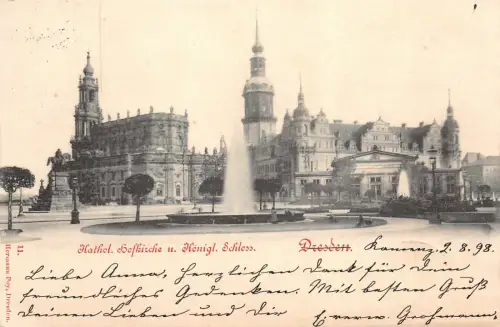 11.
Kathol. Hofkirche u. Königl. Schloss. Dresden. Kamenz, 2. 8. 98.
Hermann Poy, Dresden.
Liebe Anna, Herzlichen Dank für Dein
freundliches Gedenken. Mit besten Gruß
Deinen Lieben und Dir